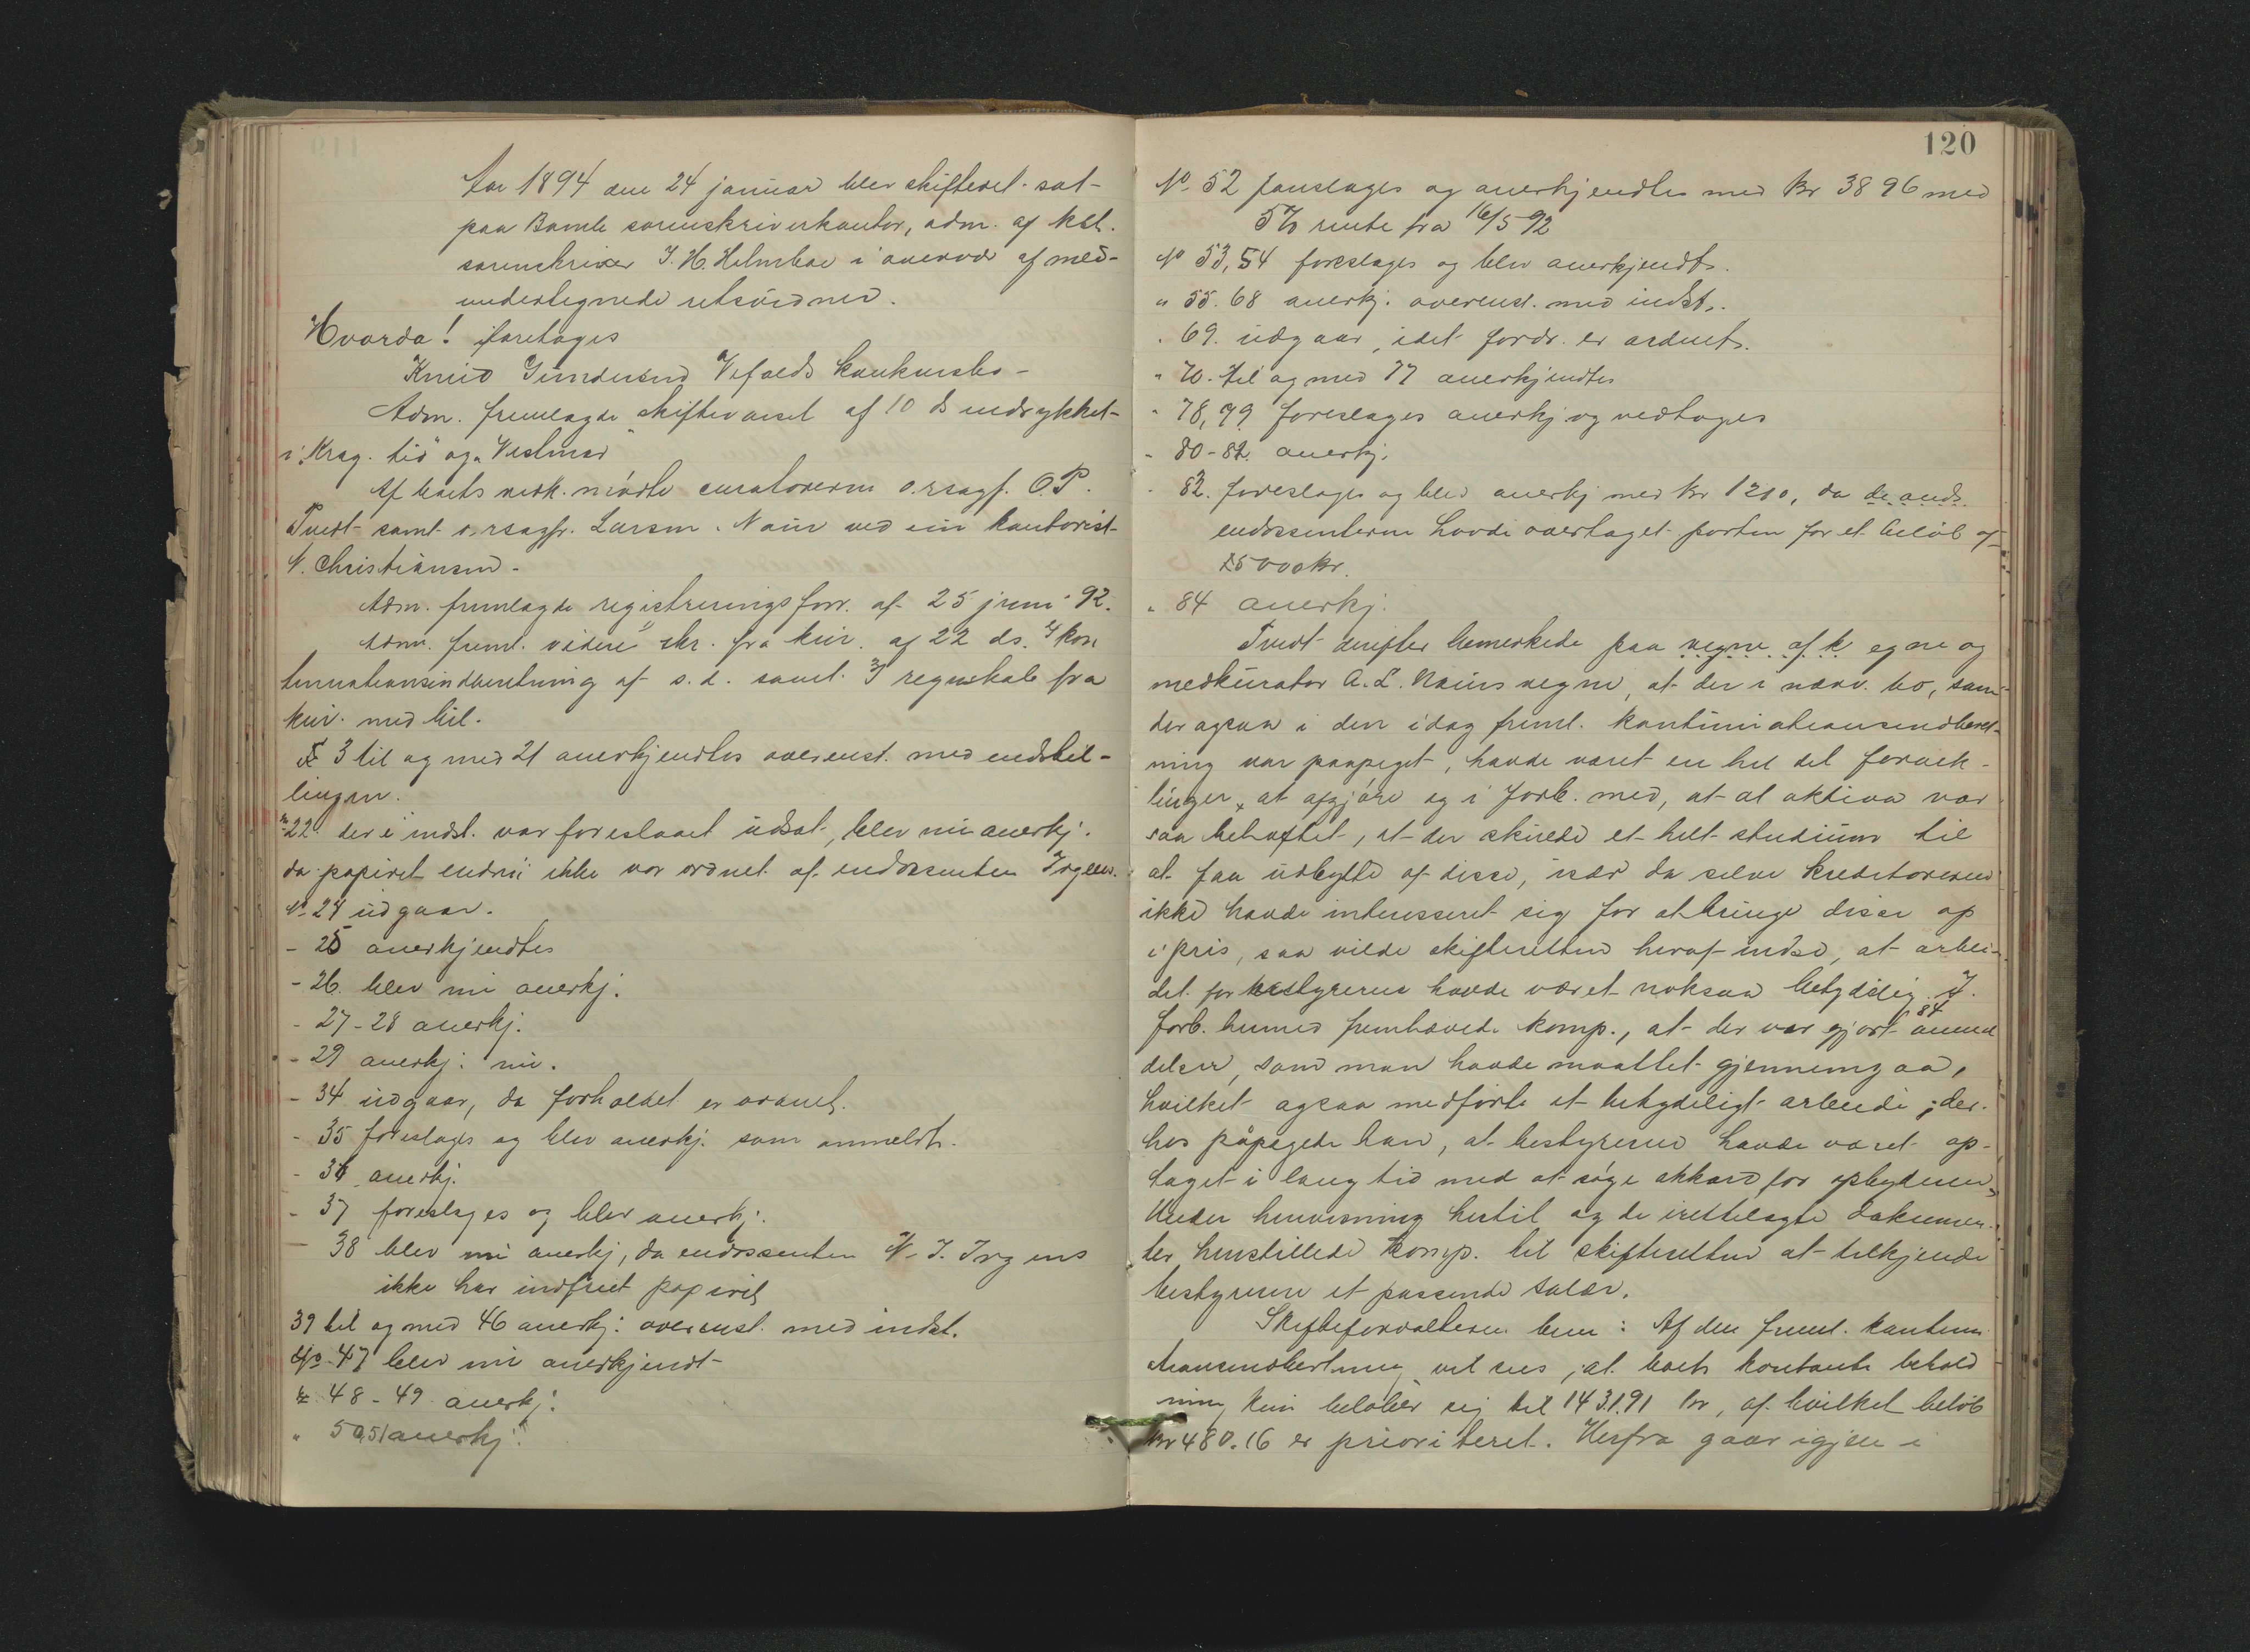 Aar 1894 den 24 januar blev skifteret sat
paa Bamle sorenskriverkontor, adm. af kst.
sorenskriver J. H. Helmboe i overvær af med-
undertegnede retsvidner.
Hvorda! foretoges
Knud Gundersens Vefalds konkursbo-
Adm. fremlagde skiftevarsel af 10 ds indrykket
i "Krag. tid" og "Vestmar"
Af boets vedk. mødte curatorerne o.rsagf. O. P.
Tvedt samt o.rsagfr. Larsen. Naur ved sin kontorist
N. Christiansen.
Adm. fremlagde registreringsforr. af 25 juni 92.
Adm. freml. videre skr. fra kur. af 22 ds. 4 kon
tinuationsindberetning af s. d. samt 3 regnskab fra
kur. med bil.
No 3 til og med 21 anerkjendtes overenst. med indstil-
lingen.
No 22 der i indst. var foreslaaet udsat, blev nu anerkj.
da papiret endnu ikke var ordnet af endossenten Irgens.
No 24 udgaar.
- 25 anerkjendtes
- 26 blev nu anerkj.
- 27-28 anerkj.
- 29 anerkj. nu.
- 34 udgaar, da forholdet er ordnet.
- 35 foreslages og blev anerkj. som anmeldt.
- 36 anerkj.
- 37 foreslages og blev anerkj.
- 38 blev nu anerkj, da endossenten N. J. Irgens
ikke har indfriet papiret
39 til og med 46 anerkj. overenst. med indst.
No 47 blev nu anerkjendt
" 48-49 anerkj.
" 50,51 anerkj.
120
No 52 foreslages og anerkjendtes med Kr 3896 med
5% rente fra 16/5 92
No 53, 54 foreslages og blev anerkjendt.
" 55-68 anerkj. overenst. med indst.
" 69 udgaar, idet fordr. er ordnet.
" 70 til og med 77 anerkjendtes
" 78, 79 foreslages anerkj og vedtoges
" 80-82 anerkj.
" 82. foreslages og blev anerkj med Kr 1210, da de andr
endossenterne havde overtaget posten for et beløb af
25000 kr.
" 84 anerkj.
Tvedt derefter bemerkede paa vegne af k egne og
medkurator A. L. Naurs vegne, at der i nærv. bo, som
der ogsaa i den idag freml. kontinuationsindberet-
ning var paapeget, havde været en hel del forvik-
linger at afgjøre og i forb. med, at al aktiva var
saa behæftet, at der skulde et helt studium til
at faa udbytte af disse, især da selve kreditorerne
ikke havde interesseret sig for at bringe disse op
i pris, saa vilde skifteretten heraf indse, at arbei-
det for bestyrerne havde været noksaa betydelig. I
forb. hermed fremhævede komp., at der var gjort 84 anmel
delser, som man havde maattet gjennemgaa,
hvilket ogsaa medførte et betydeligt arbeide; der-
hos påpegede han, at bestyrerne havde været op-
taget i lang tid med at søge akkord for opbyderen.
Under henvisning hertil og de irettelagte dokumen-
ter henstillede komp. til skifteretten at tilkjende
bestyrerne et passende salær.
Skifteforvalteren bem: Af den freml. kontinu
ationsindberetning vil sees, at boets kontante behold
ning kun beløber sig til 1431.91 kr, af hvilket beløb
Kr 480.16 er prioriteret. Herfra gaar igjen i